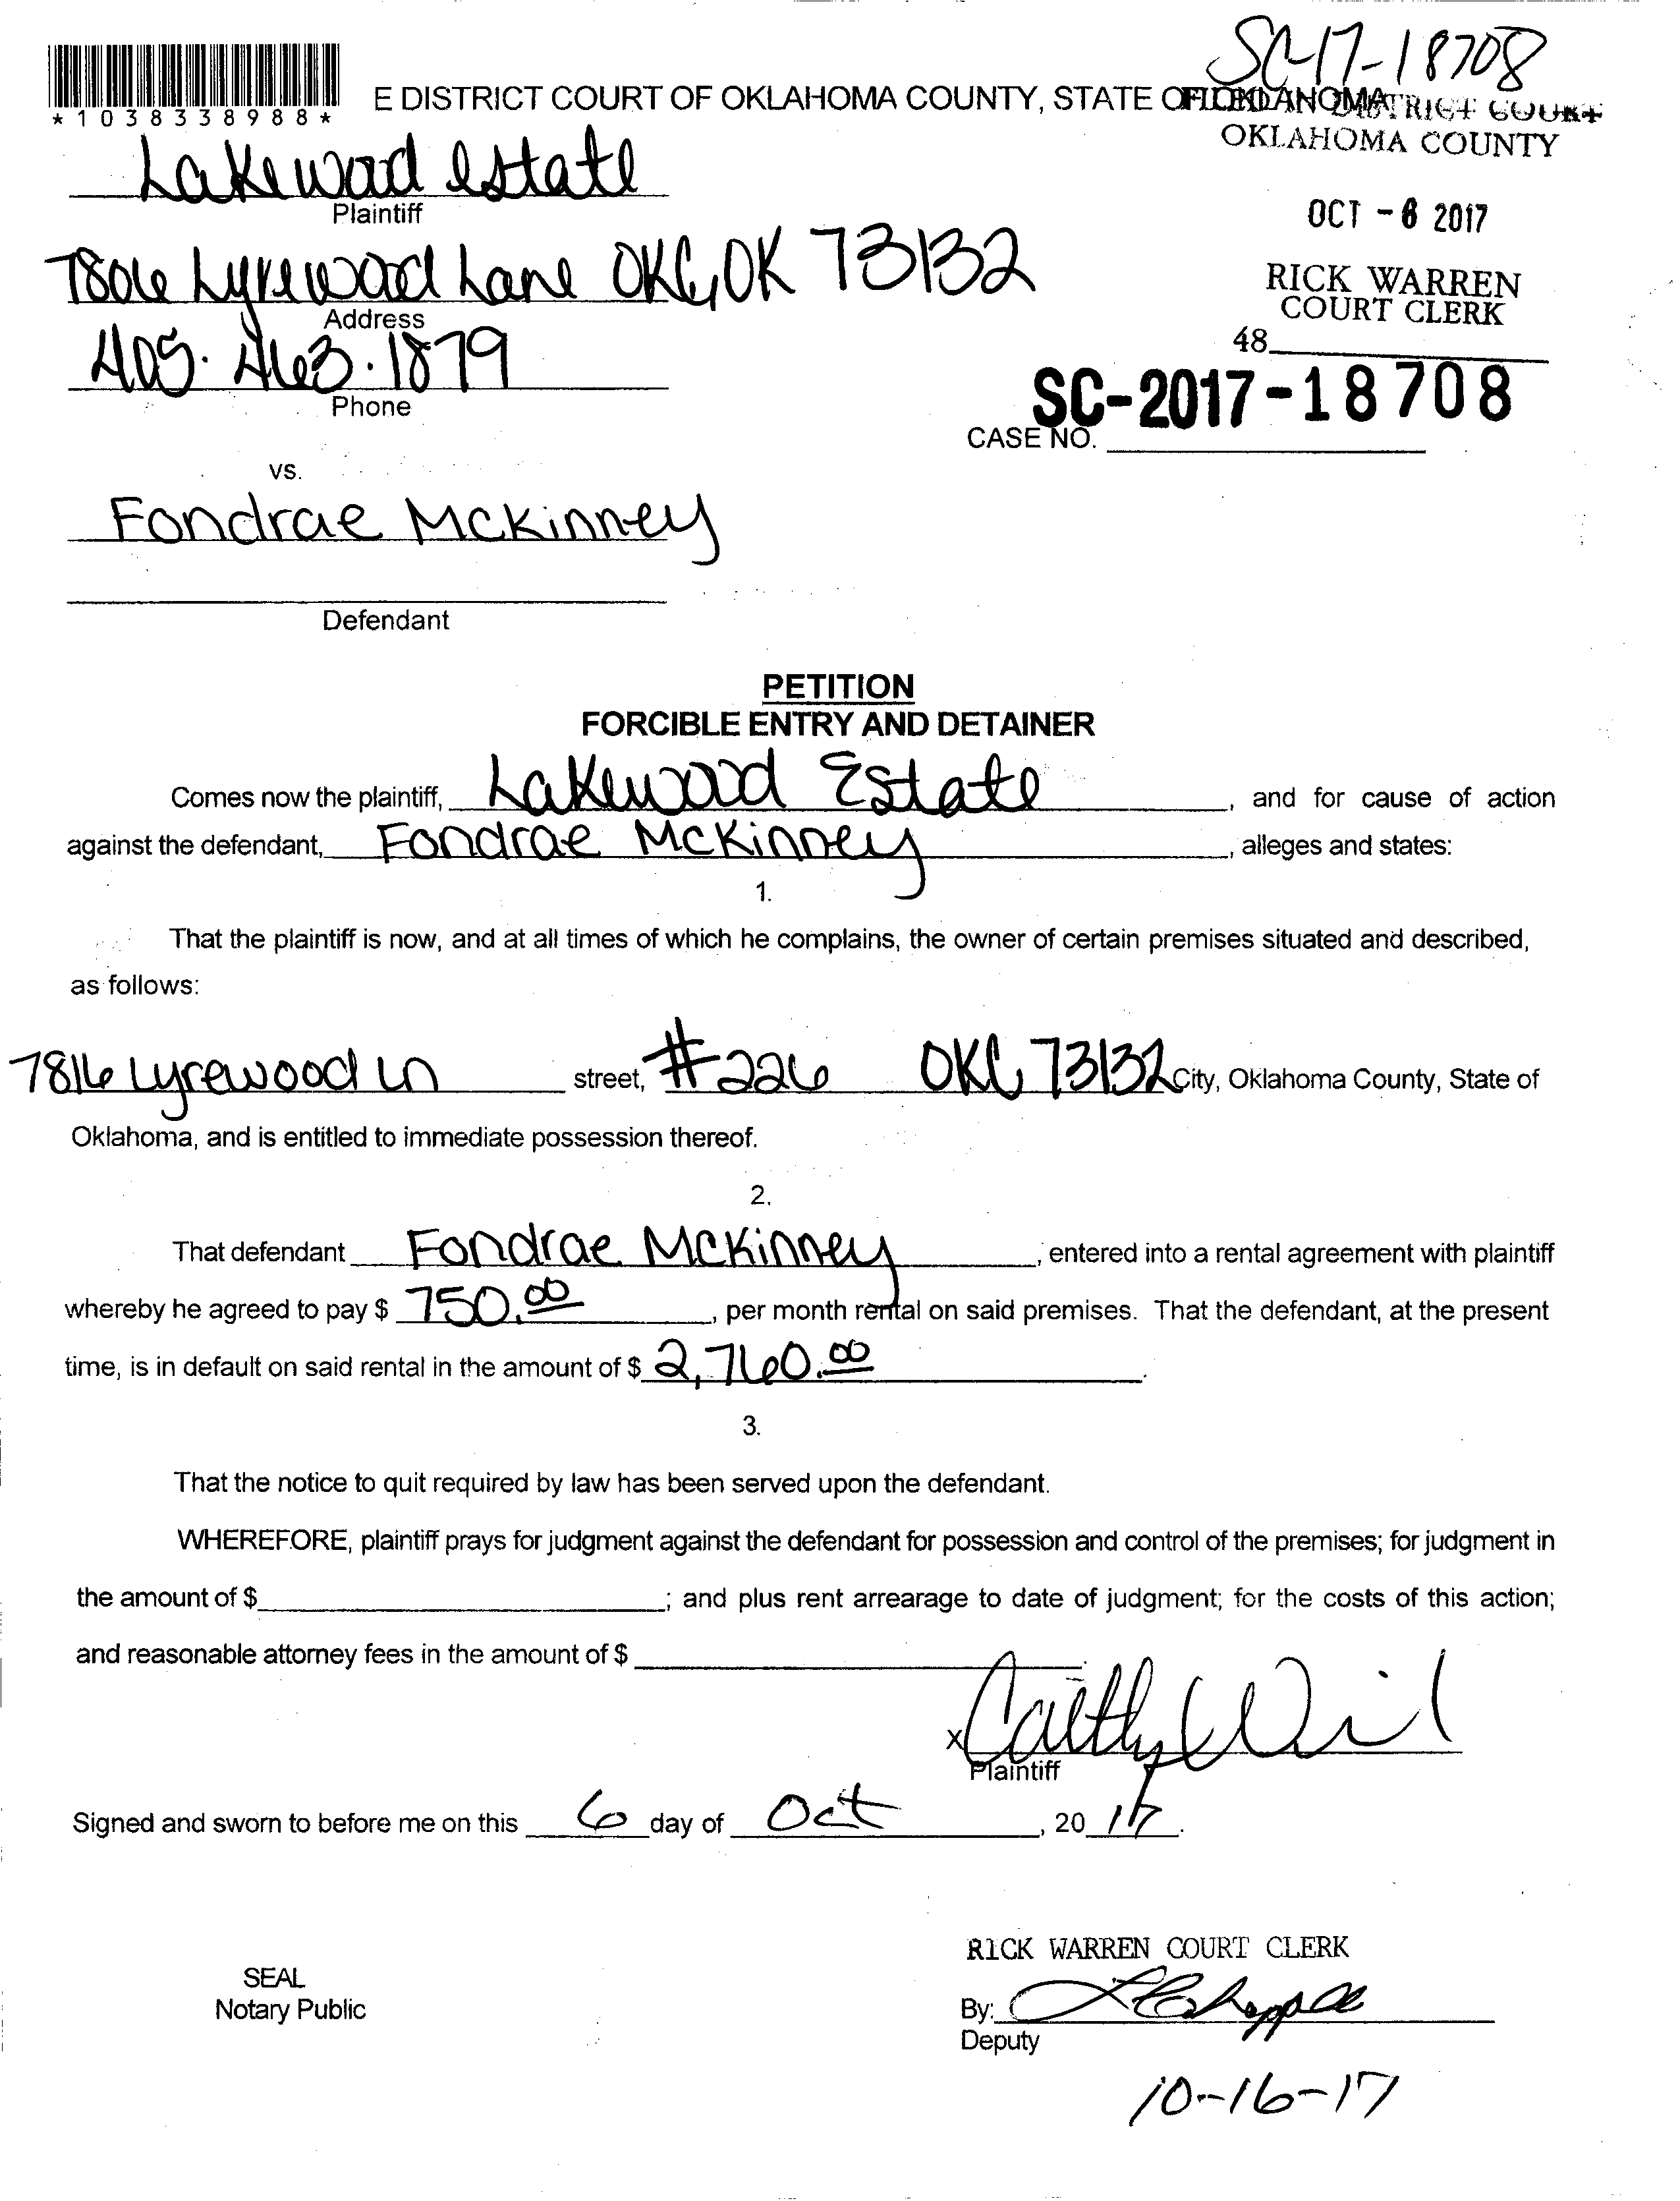 SC-17-18708
*1038338988*
E DISTRICT COURT OF OKLAHOMA COUNTY, STATE OF OKLAHOMA
DISTRICT COURT
OKLAHOMA COUNTY
Lakewood Estate
Plaintiff
OCT -6 2017
7806 Lyrewood Lane OKC, OK 73132
Address
RICK WARREN
COURT CLERK
48
405. 463. 1879
Phone
SC-2017-18708
CASE NO.
vs.
Fondrae McKinney
Defendant
PETITION
FORCIBLE ENTRY AND DETAINER
Comes now the plaintiff, Lakewood Estate, and for cause of action
against the defendant, Fondrae McKinney, alleges and states:
1.
That the plaintiff is now, and at all times of which he complains, the owner of certain premises situated and described,
as follows:
7816 Lyrewood Ln street, #226 OKC 73132 City, Oklahoma County, State of
Oklahoma, and is entitled to immediate possession thereof.
2.
That defendant Fondrae McKinney, entered into a rental agreement with plaintiff
whereby he agreed to pay $ 750.00, per month rental on said premises. That the defendant, at the present
time, is in default on said rental in the amount of $ 2,760.00.
3.
That the notice to quit required by law has been served upon the defendant.
WHEREFORE, plaintiff prays for judgment against the defendant for possession and control of the premises; for judgment in
the amount of $ ; and plus rent arrearage to date of judgment; for the costs of this action;
and reasonable attorney fees in the amount of $ .
x
Plaintiff
Signed and sworn to before me on this 6 day of Oct, 20 17.
RICK WARREN COURT CLERK
SEAL
Notary Public
By:
Deputy
10-16-17